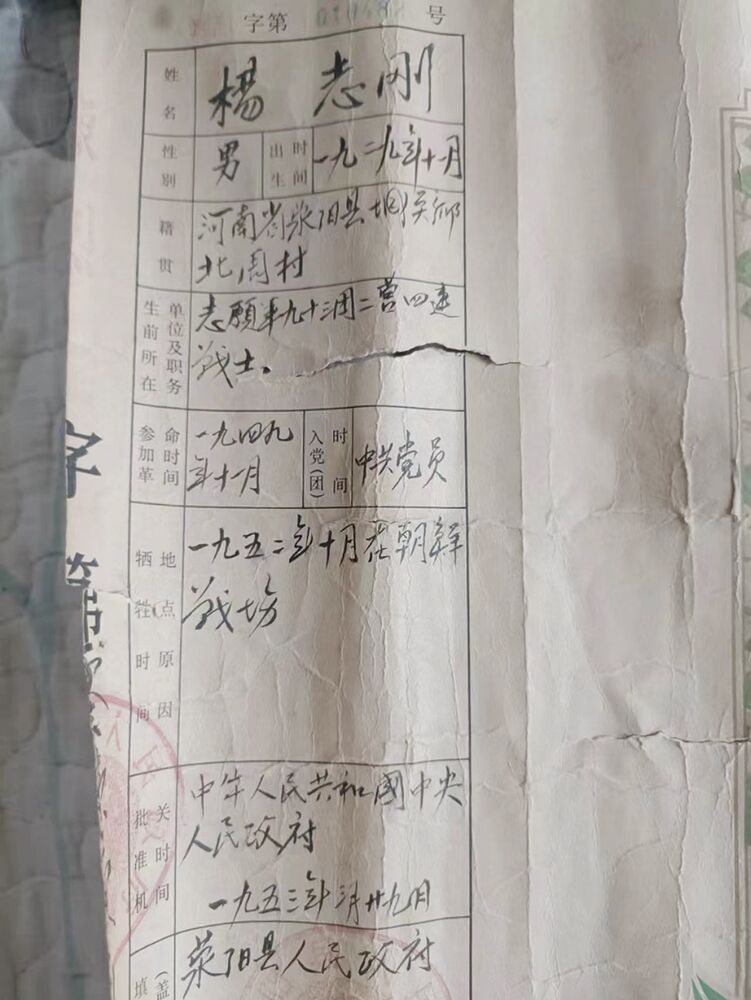 字第 号
姓名 杨志刚
性别 男 出生时间 一九二九年十一月
籍贯 河南省荥阳县 乡
北周村
生前所在单位及职务 志願军九十三团二营四连
战士.
参加革命时间 一九四九
年十一月 入党(团)时间 中共党员
牺牲时间地点原因 一九五二年十月在朝鲜
战场
批准机关时间 中华人民共和國中央
人民政府
一九五三年三月廿九日
填 (盖 荥阳县人民政府
字
第